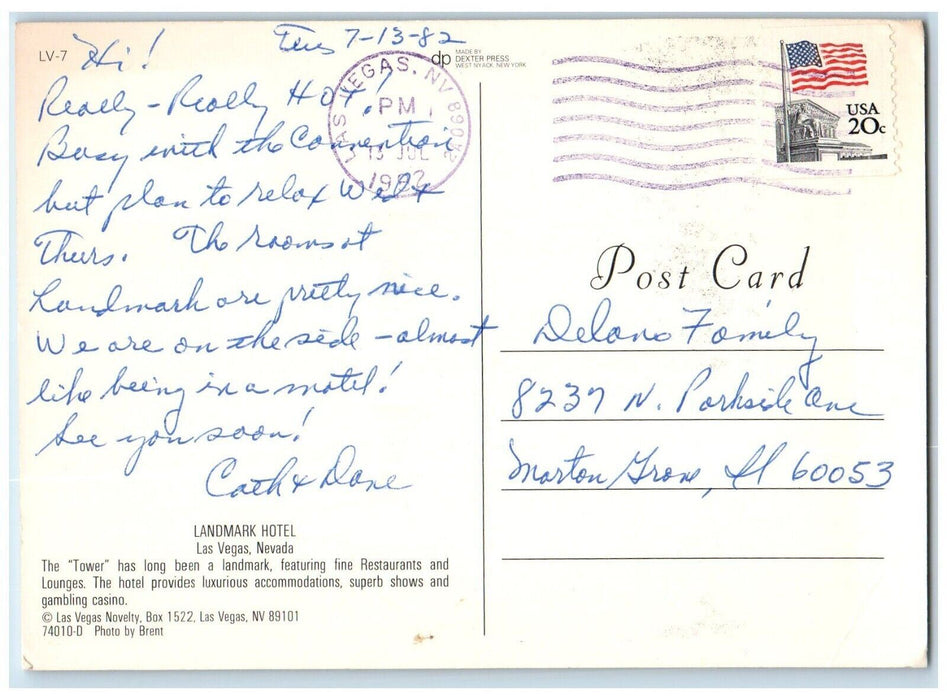 LV-7
Hi!
Tues 7-13-82
dp MADE BY
DEXTER PRESS
WEST NYACK, NEW YORK
LAS VEGAS, NV
PM
13 JUL
1982
USA
20c
Really - Really HOT!
Busy with the Convention
but plan to relax Wed +
Thurs. The rooms at
Landmark are pretty nice.
We are on the side - almost
like being in a motel!
See you soon!
Cath + Dave
Post Card
Delano Family
8237 N. Parkside Ave
Morton Grove, Il 60053
LANDMARK HOTEL
Las Vegas, Nevada
The "Tower" has long been a landmark, featuring fine Restaurants and
Lounges. The hotel provides luxurious accommodations, superb shows and
gambling casino.
© Las Vegas Novelty, Box 1522, Las Vegas, NV 89101
74010-D Photo by Brent